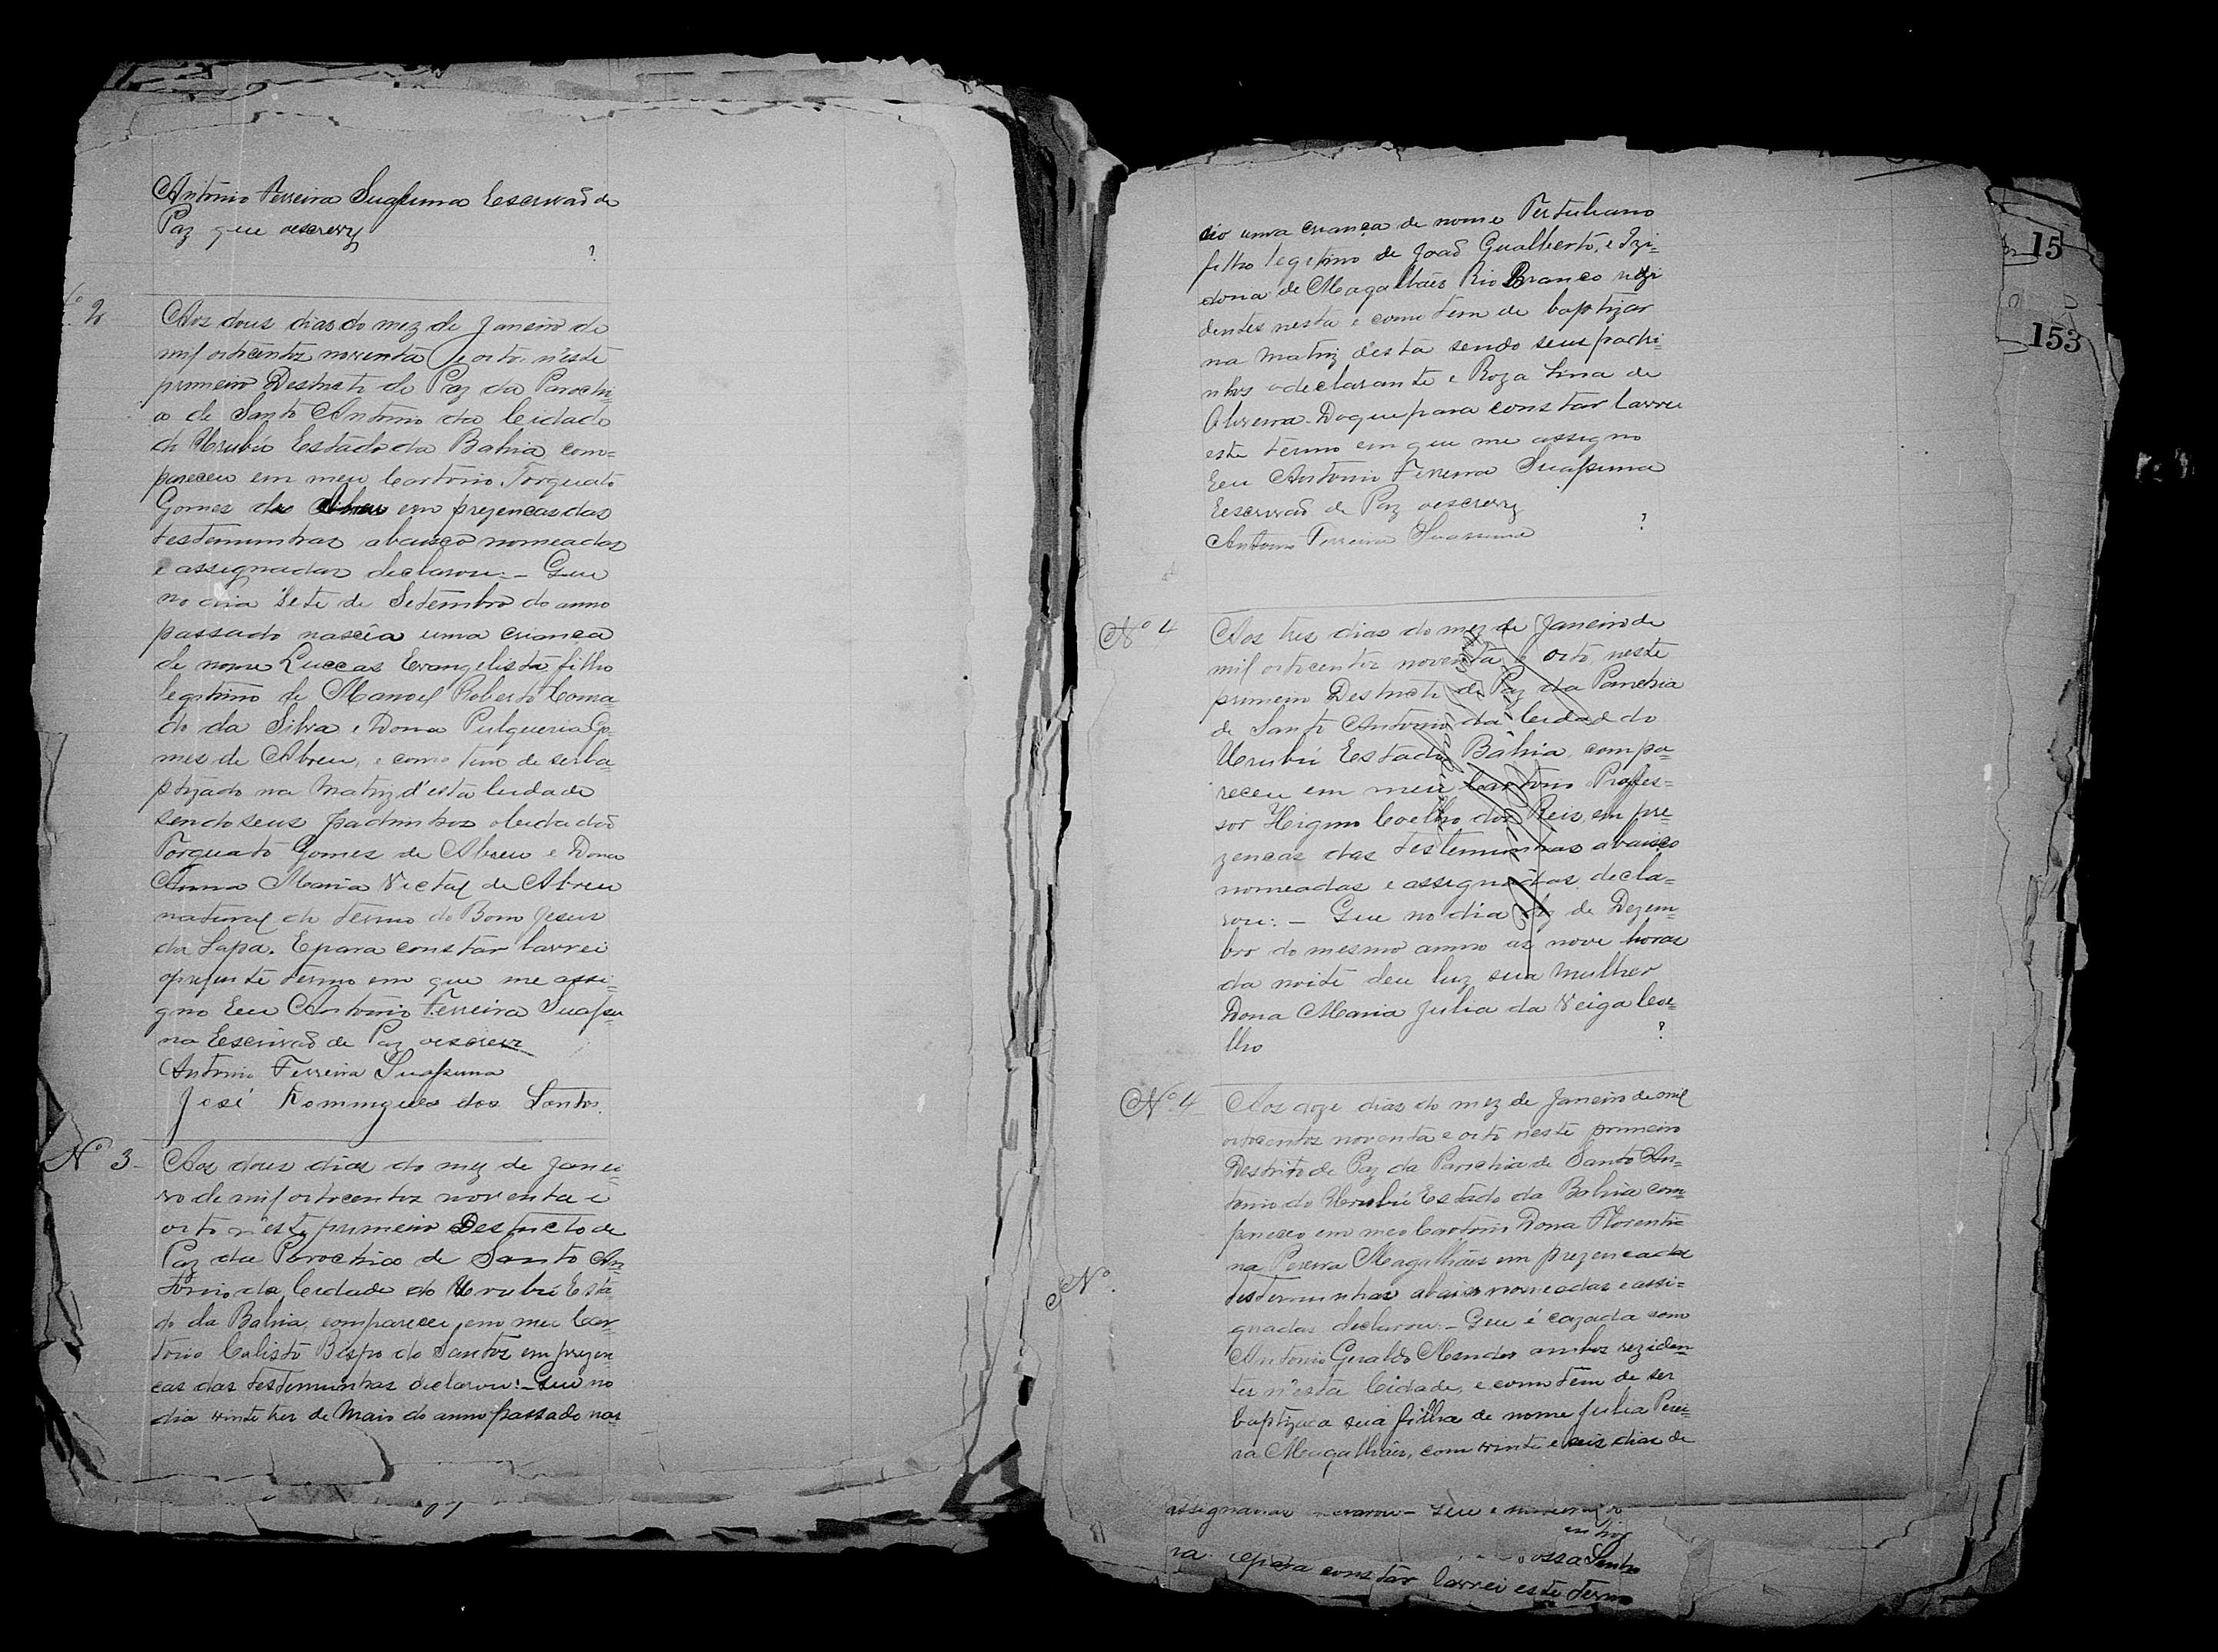 Antonio Ferreira Suassuna Escrivaõ de
Paz que oescrevy
Nº 2
Aos dous dias do mez de Janeiro de
mil oitocentos noventa e oito n'este
primeiro Destricto de Paz da Parochi=
a de Santo Antonio da Cidade
do Urubú Estado da Bahia com=
pareceu em meu Cartorio Torquato
Gomes de Abreu em prezencas das
testemunhas abaixo nomeadas
e assignadas declarou:- Que
no dia sete de Setembro do anno
passado nascêa uma criança
de nome Luccas Evangelista filho
legitimo de Manoel Roberto Coma=
do da Silva e Dona Pulqueria Go=
mes de Abreu, e como tem de ser ba=
ptizado na Matriz d'esta Cidade
sendo seus padrinhos o Cidadaõ
Torquato Gomes de Abreu e Dona
Anna Maria Victal de Abreu
natural do termo do Bom Jesus
da Lapa. E para constar lavrei
o prezente termo em que me assi=
gno Eeu Antonio Ferreira Suassu=
na Escrivaõ de Paz oescrevi
Antonio Ferreira Suassuna
José Domingues dos Santos.
Nº 3-
Aos dous dias do mez de Janei=
ro de mil oitocentos noventa e
oito n'este primeiro Destricto de
Paz da Parochia de Santo An=
tonio da Cidade do Urubú Esta=
do da Bahia, compareceu em meu Car=
torio Calisto Bispo do Santos em prezen=
cas das testemunhas declarou:- Que no
dia vinte tres de Maio do anno passado nas
15
153
cio uma criança de nome Tertuliano
filho legitimo de Joaõ Gualberto, e Izi=
dona de Magalhães Rio Branco rezi
dentes nesta e como tem de baptizar
na Matriz d'esta sendo seus padri=
nhos o declarante e Roza Lina de
Oliveira. Do que para constar lavrei
este termo em que me assigno
Eeu Antonio Ferreira Suassuna
Escrivaõ de Paz oescrevy
Antonio Ferreira Suassuna
Nº 4
Aos tres dias do mez de Janeiro de
mil oitocentos noventa e oito, neste
primeiro Destricto de Paz da Parochia
de Santo Antonio da Cidad do
Urubú Estado Bahia, compa=
receu em meu Cartorio Profes=
sor Higino Coelho dos Reis, em pre=
zencas das testemunhas abaixo
nomeadas e assignadas, decla=
rou:- Que no dia de Dezem=
bro do mesmo anno as nove horas
da noite deu luz sua mulher
Dona Maria Julia da Veiga Coe=
lho
Nº 4
Aos doze dias do mez de Janeiro de mil
oitocentos noventa e oito neste primeiro
Destrito de Paz da Parochia de Santo An=
tonio do Urubú Estado da Bahia com
pareceo em meo Cartorio Dona Florenti=
na Pereira Magalhães em prezenca da
testemunhas abaixo nomeadas e assi=
gnadas declarou:- Que é cazada com
Antonio Geraldo Mendes ambos reziden=
tes n'esta Cidade, e como tem de ser
baptizada sua filha de nome Julia Perei=
ra Magalhães, com vinte e seis dias de
Nº
assignadas declarou- Que e
ossa Senho
ra. E para constar lavrei este termo